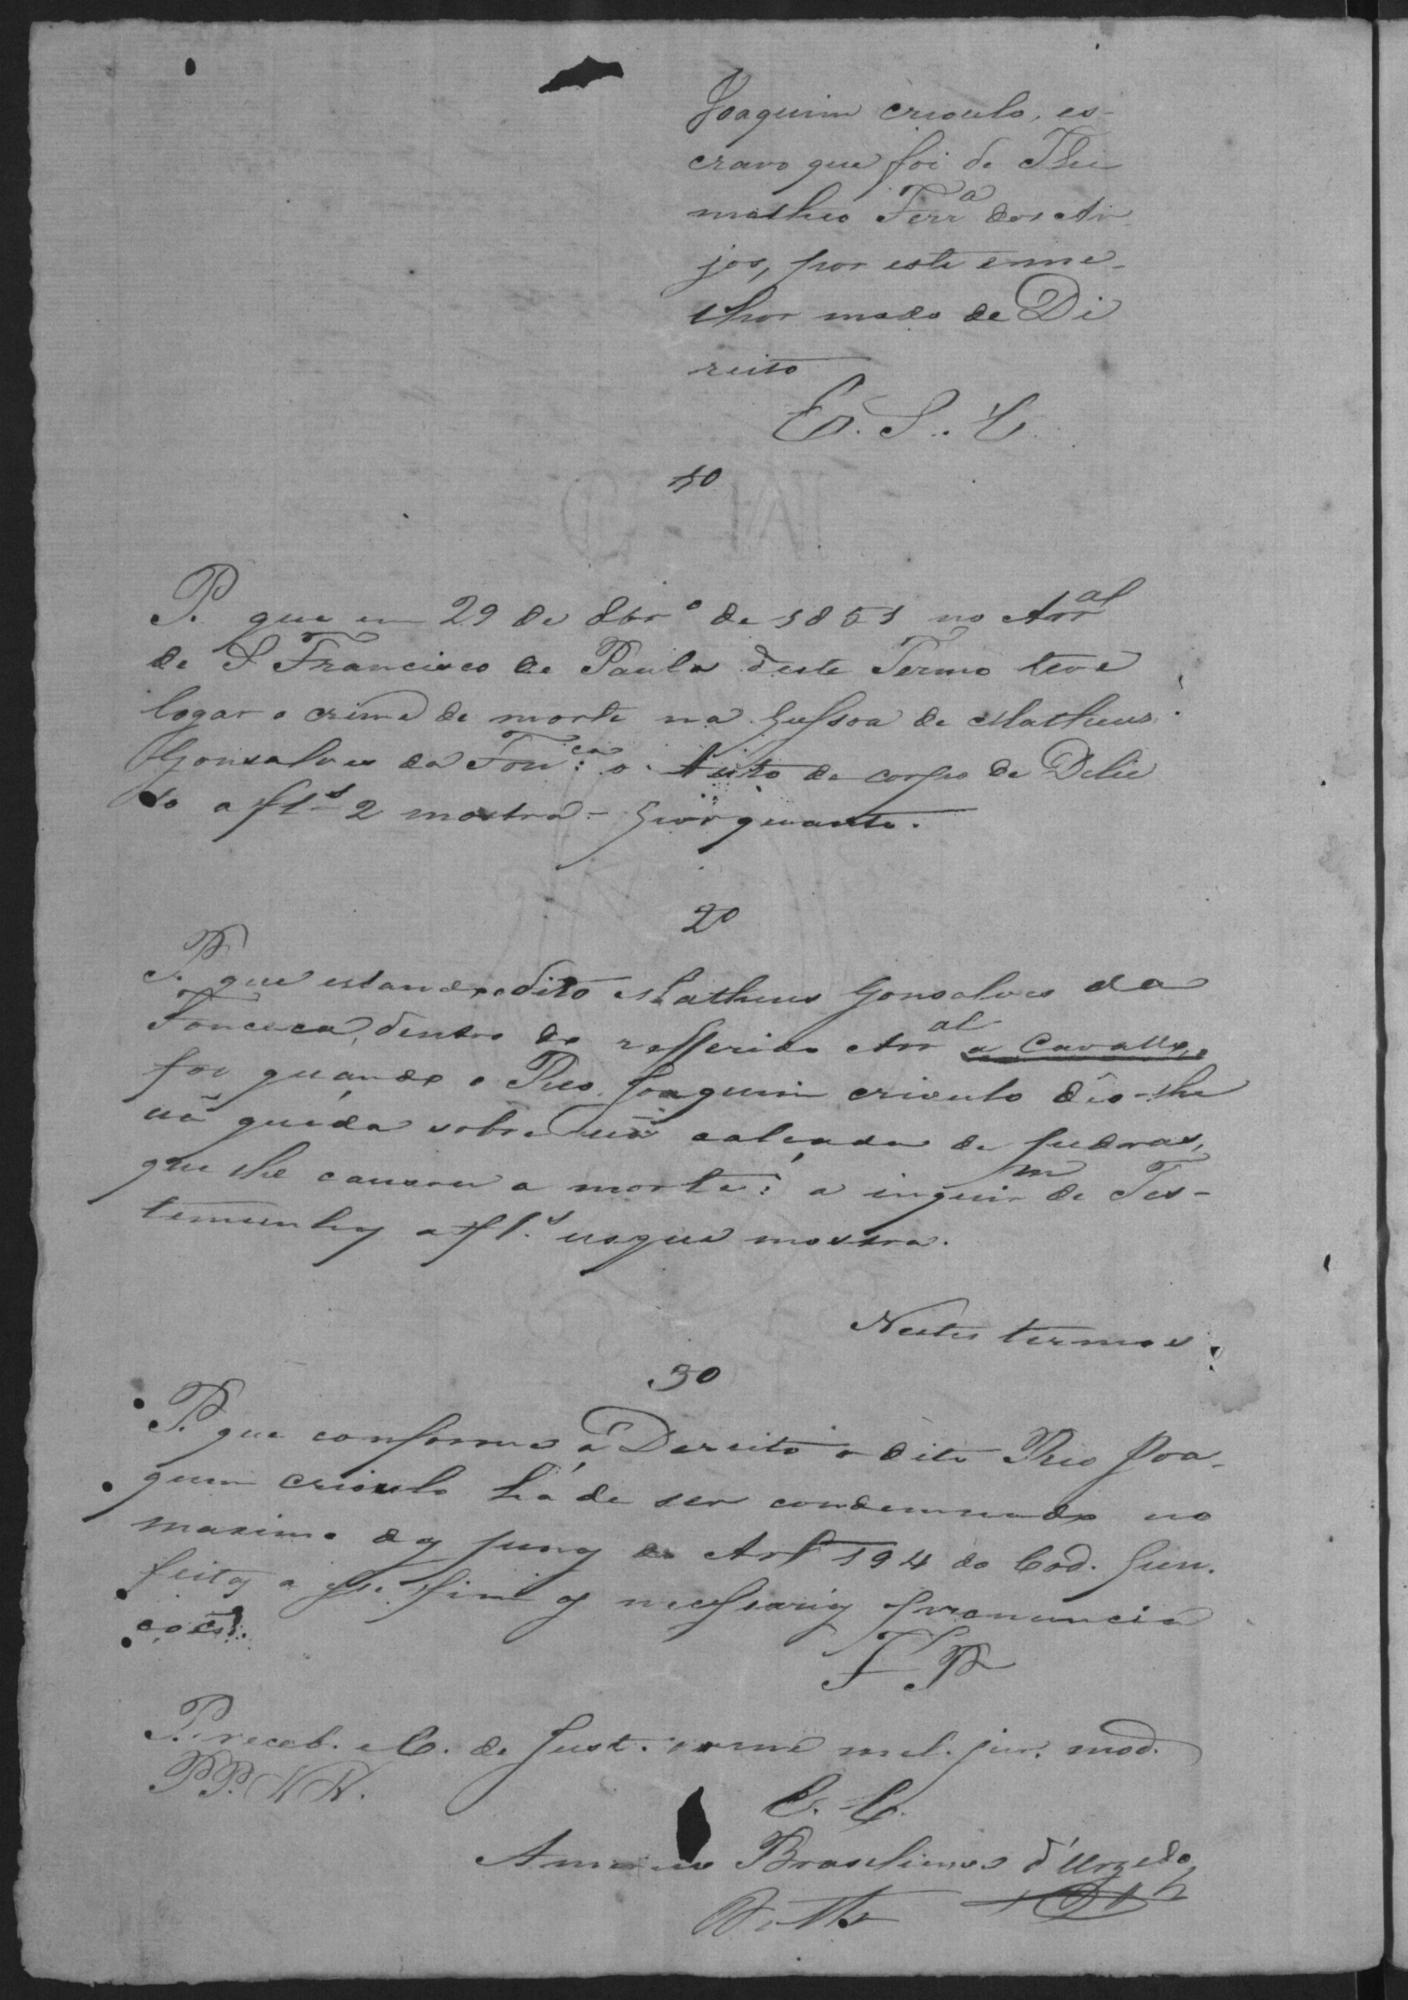 Joaquim crioulo, es-
cravo que foi de Thi
motheo Ferrª dos An
jos, por este e me-
lhor modo de Di
reito
E. S. C.
1º
P. que em 29 de 8brº de 1851 no Arral
de S Francisco de Paula deste Termo teve
logar o crime de morte na pessoa de Matheus
Gonsalves da Fonca: o Auto de corpo de Delic
to a fls 2 mostra - Por quanto.
2º
P. que estando o dito Matheus Gonsalves da
Fonceca, dentro do refferido Arral a Cavallo,
foi quando o Reo Joaquim crioulo dêo-lhe
uã quéda sobre uã calçada de pedras,
que lhe causou a morte: a inquirm de Tes-
temunhas a fls. usque mostra.
Nestes termos
3º
P. que conforme a Dereito o dito Reo Joa-
quim crioulo há de ser condemnado no
maximo das penas do Art 194 do Cod. Pen.
feitas a fs. fim as necessarias pronuncia
coẽs.
F P
P. receb. e C. de Just. e me mel. jur. mod.
PP. N N.
E. C.
Braselienses d'Urzedo